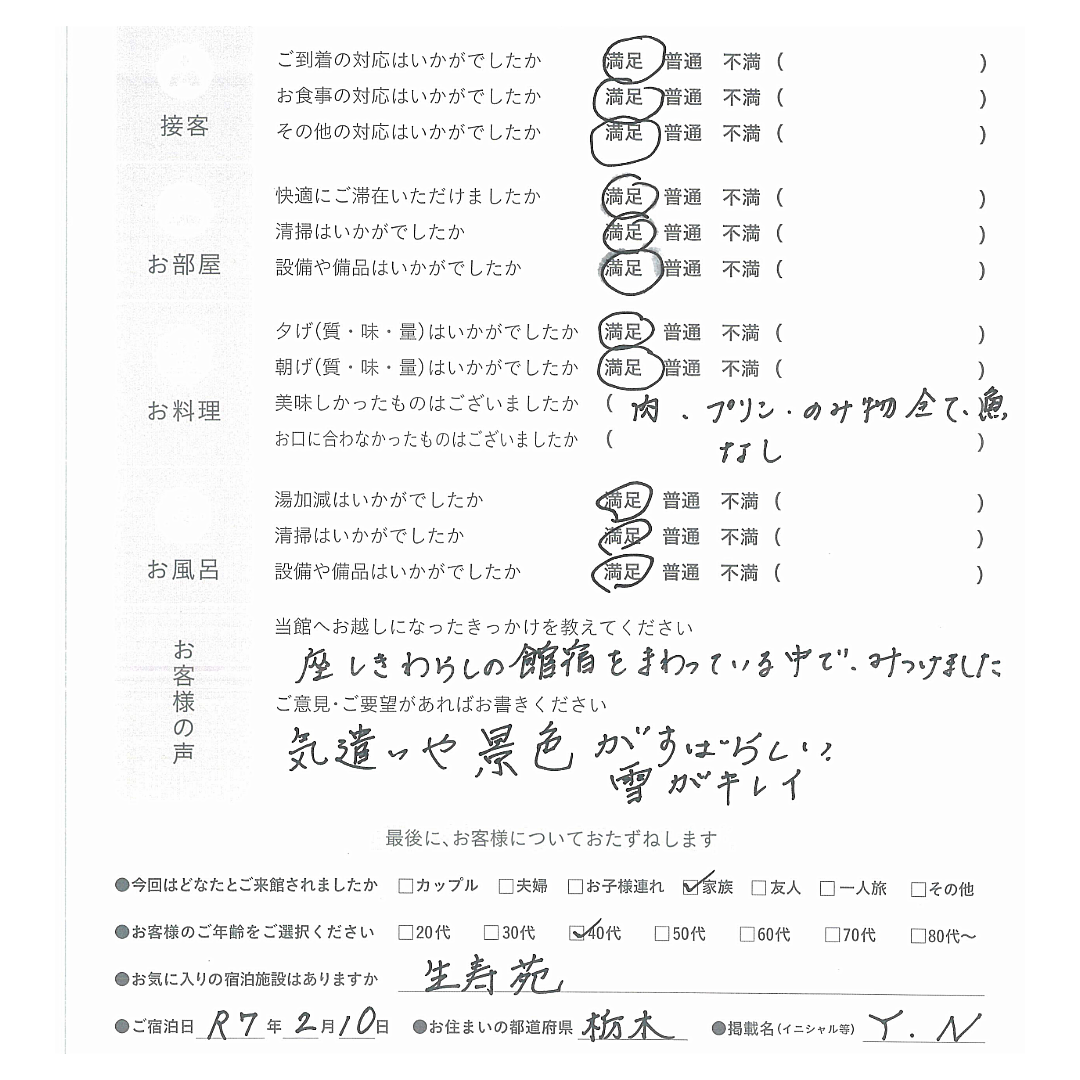 接客
ご到着の対応はいかがでしたか 満足 普通 不満 ( )
お食事の対応はいかがでしたか 満足 普通 不満 ( )
その他の対応はいかがでしたか 満足 普通 不満 ( )
お部屋
快適にご滞在いただけましたか 満足 普通 不満 ( )
清掃はいかがでしたか 満足 普通 不満 ( )
設備や備品はいかがでしたか 満足 普通 不満 ( )
お料理
夕げ(質・味・量)はいかがでしたか 満足 普通 不満 ( )
朝げ(質・味・量)はいかがでしたか 満足 普通 不満 ( )
美味しかったものはございましたか ( 肉、プリン・のみ物全て、魚 )
お口に合わなかったものはございましたか ( なし )
お風呂
湯加減はいかがでしたか 満足 普通 不満 ( )
清掃はいかがでしたか 満足 普通 不満 ( )
設備や備品はいかがでしたか 満足 普通 不満 ( )
お客様の声
当館へお越しになったきっかけを教えてください
座しきわらしの館宿をまわっている中で、みつけました
ご意見・ご要望があればお書きください
気遣いや景色がすばらしい。
雪がキレイ
最後に、お客様についておたずねします
●今回はどなたとご来館されましたか □カップル □夫婦 □お子様連れ ☑家族 □友人 □一人旅 □その他
●お客様のご年齢をご選択ください □20代 □30代 ☑40代 □50代 □60代 □70代 □80代〜
●お気に入りの宿泊施設はありますか 生寿苑
●ご宿泊日 R7年2月10日 ●お住まいの都道府県 栃木 ●掲載名(イニシャル等) Y.N